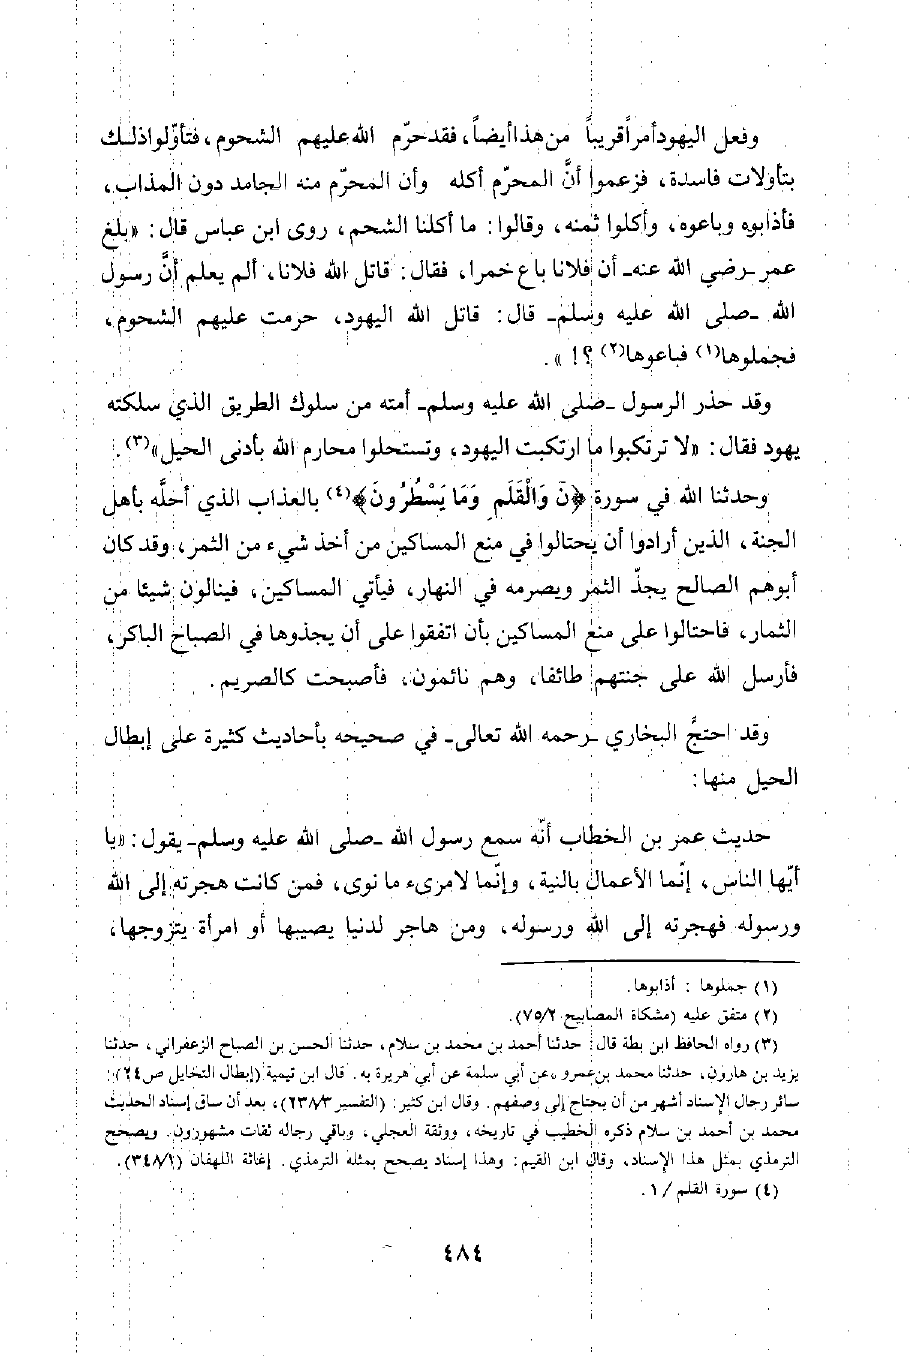 وفعل اليهود أمراً قريباً من هذا أيضاً، فقد حرّم الله عليهم الشحوم، فتأوّلوا ذلك
بتأولات فاسدة، فزعموا أنَّ المحرّم أكله وأن المحرّم منه الجامد دون المذاب،
فأذابوه وباعوه، وأكلوا ثمنه، وقالوا: ما أكلنا الشحم، روى ابن عباس قال: «بلغ
عمر -رضي الله عنه- أن فلانا باع خمرا، فقال: قاتل الله فلانا، ألم يعلم أنَّ رسول
الله -صلى الله عليه وسلم- قال: قاتل الله اليهود، حرمت عليهم الشحوم،
فجملوها(١) فباعوها(٢)؟! ».
وقد حذر الرسول -صلى الله عليه وسلم- أمته من سلوك الطريق الذي سلكته
يهود فقال: «لا ترتكبوا ما ارتكبت اليهود، وتستحلوا محارم الله بأدنى الحيل»(٣).
وحدثنا الله في سورة ﴿نَ وَالْقَلَمِ وَمَا يَسْطُرُونَ﴾(٤) بالعذاب الذي أحلَّه بأهل
الجنة، الذين أرادوا أن يحتالوا في منع المساكين من أخذ شيء من الثمر، وقد كان
أبوهم الصالح يجذّ الثمر ويصرمه في النهار، فيأتي المساكين، فينالون شيئا من
الثمار، فاحتالوا على منع المساكين بأن اتفقوا على أن يجذوها في الصباح الباكر،
فأرسل الله على جنتهم طائفا، وهم نائمون، فأصبحت كالصريم.
وقد احتجَّ البخاري -رحمه الله تعالى- في صحيحه بأحاديث كثيرة على إبطال
الحيل منها:
حديث عمر بن الخطاب أنّه سمع رسول الله -صلى الله عليه وسلم- يقول: «يا
أيّها الناس، إنّما الأعمال بالنية، وإنّما لامرىء ما نوى، فمن كانت هجرته إلى الله
ورسوله فهجرته إلى الله ورسوله، ومن هاجر لدنيا يصيبها أو امرأة يتزوجها،
(١) جملوها : أذابوها.
(٢) متفق عليه (مشكاة المصابيح ٧٥/٢).
(٣) رواه الحافظ ابن بطة قال: حدثنا أحمد بن محمد بن سلام، حدثنا الحسن بن الصباح الزعفراني، حدثنا
يزيد بن هارون، حدثنا محمد بن عمرو، عن أبي سلمة عن أبي هريرة به. قال ابن تيمية (إبطال التحايل ص٢٤):
سائر رجال الإسناد أشهر من أن يحتاج إلى وصفهم. وقال ابن كثير: (التفسير ٢٣٨/٣)، بعد أن ساق إسناد الحديث
محمد بن أحمد بن سلام ذكره الخطيب في تاريخه، ووثقة العجلي، وباقي رجاله ثقات مشهورون. ويصحح
الترمذي بمثل هذا الإسناد، وقال ابن القيم: وهذا إسناد يصحح بمثله الترمذي. إغاثة اللهفان (٣٤٨/١).
(٤) سورة القلم /١.
٤٨٤